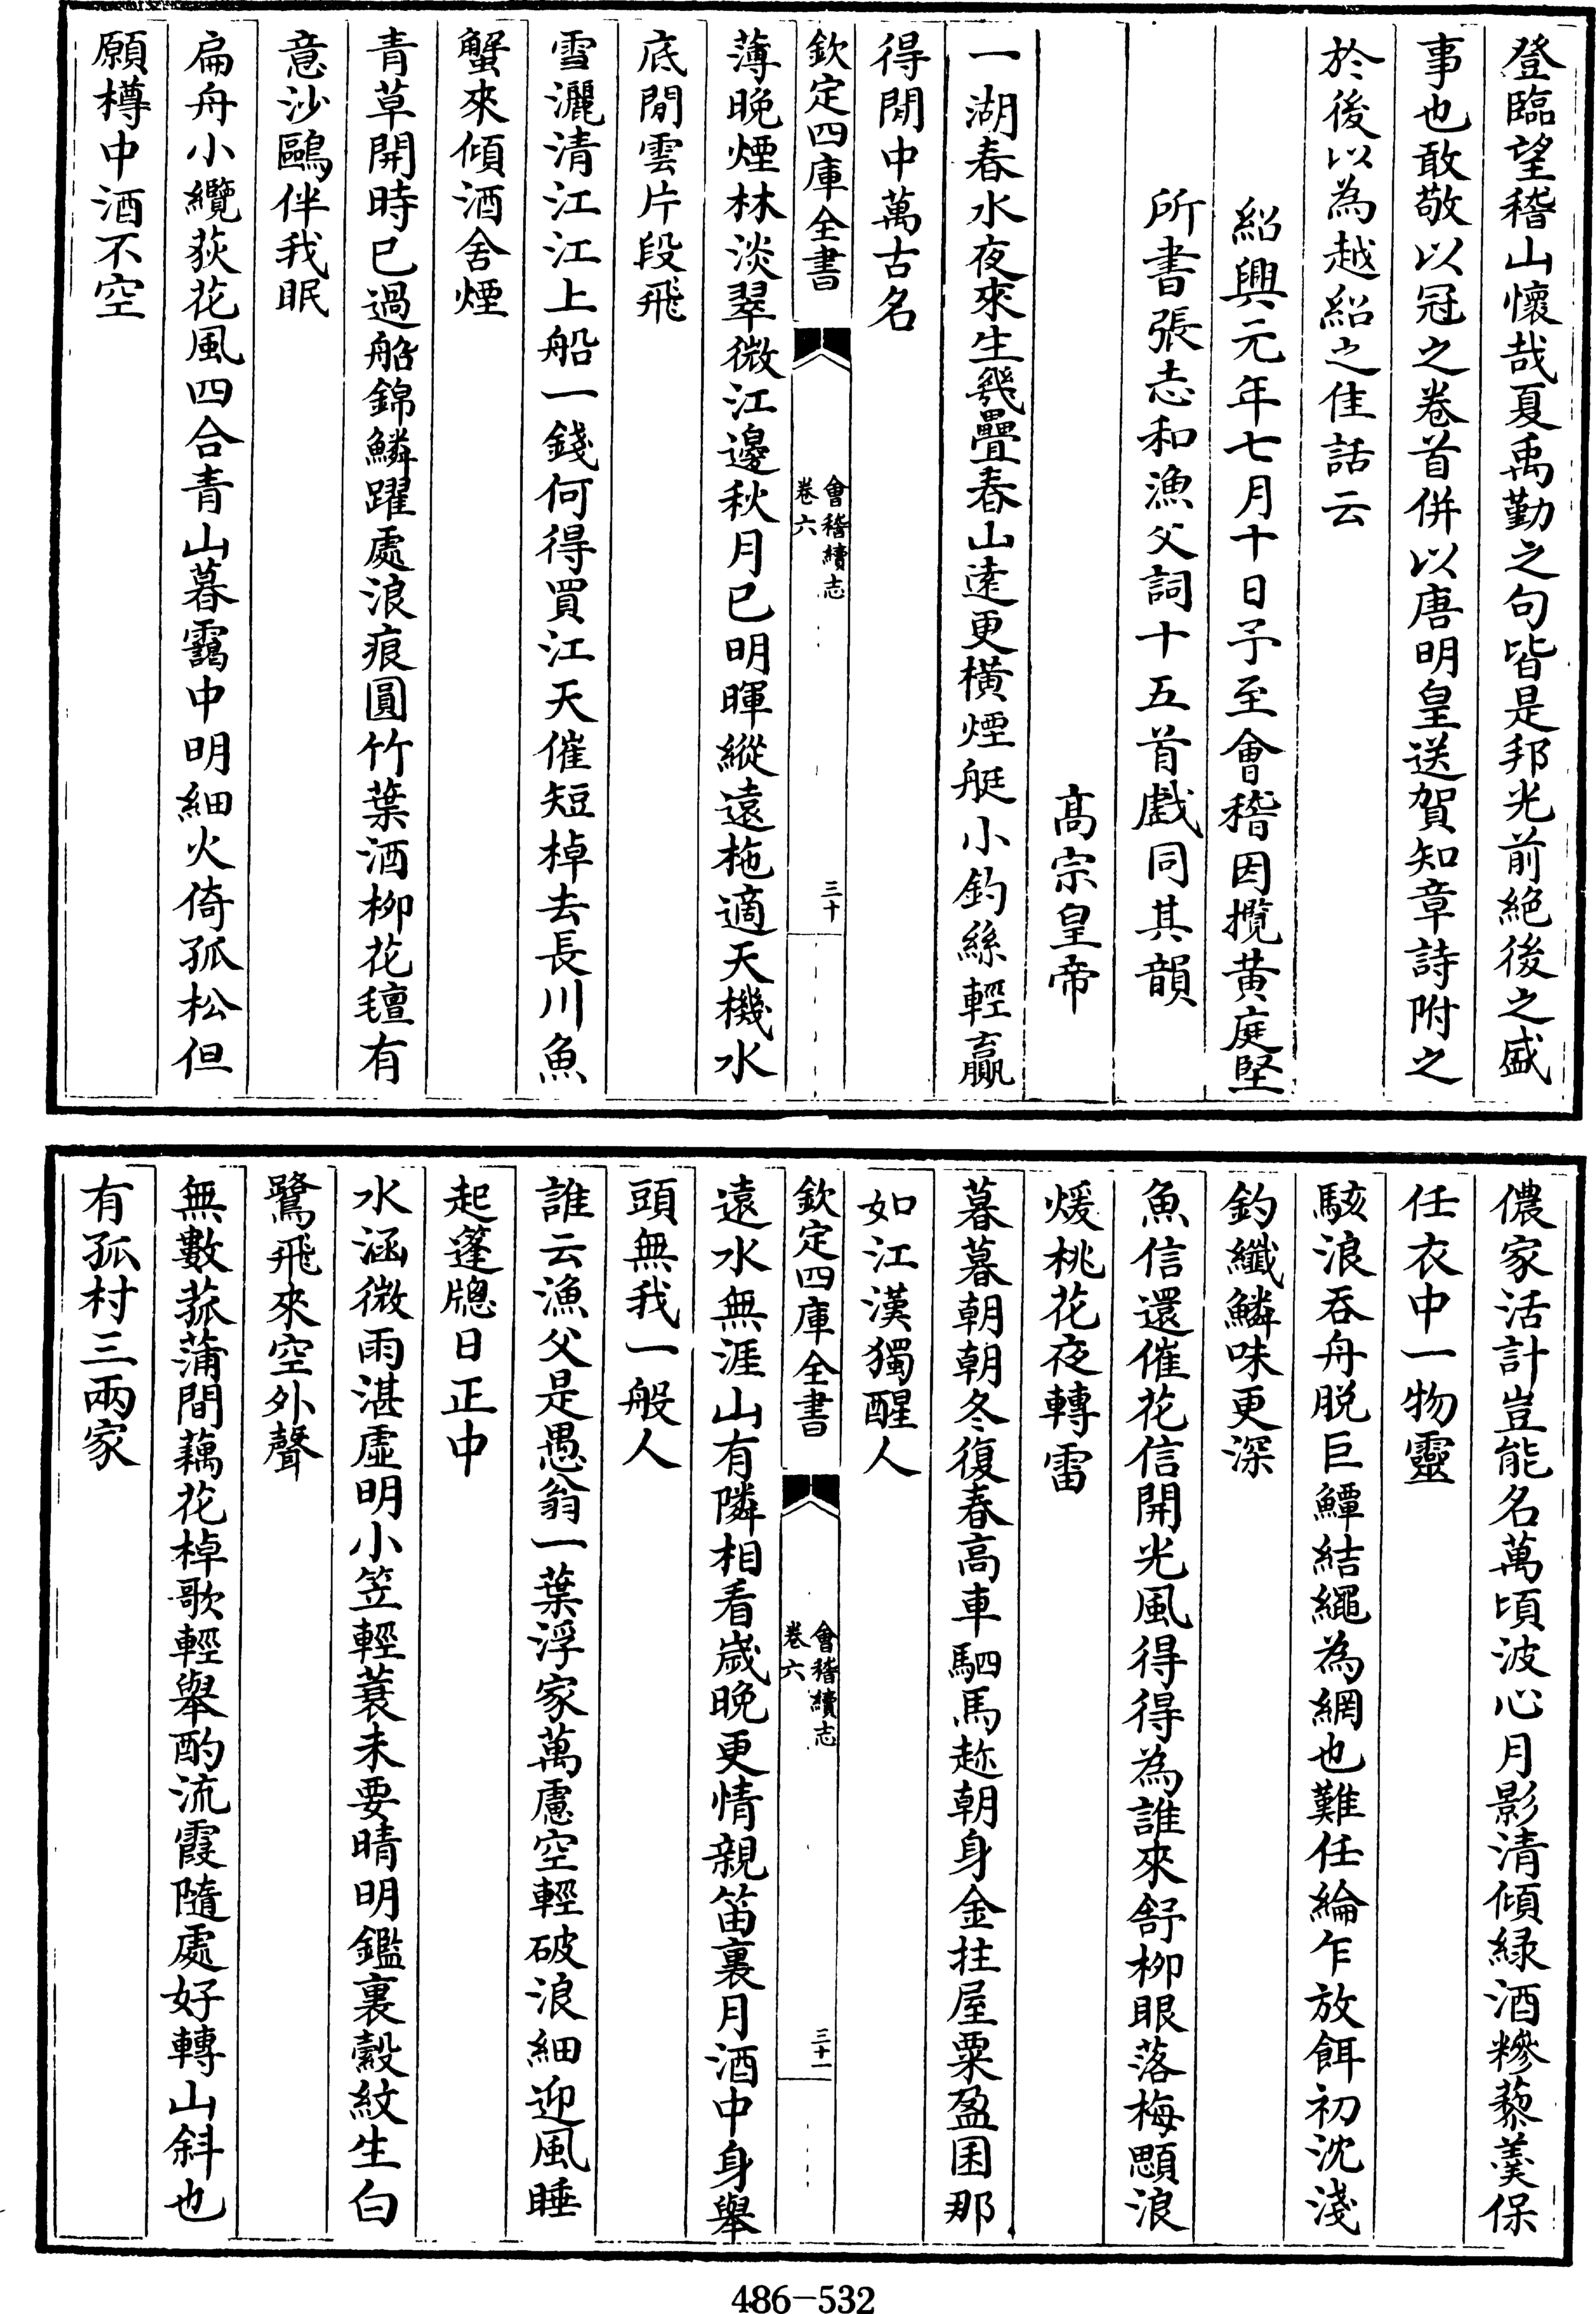 登臨望稽山懷哉夏禹勤之句皆是邦光前絶後之盛
事也敢敬以冠之卷首併以唐明皇送賀知章詩附之
於後以為越紹之佳話云
紹興元年七月十日予至會稽因攬黄庭堅
所書張志和漁父詞十五首戯同其韻
髙宗皇帝
一湖春水夜來生幾疊春山逺更横煙艇小釣絲輕贏
得閒中萬古名
欽定四庫全書
會稽續志
卷六
三十
薄晚煙林淡翠微江邊秋月已明暉縱遠柂適天機水
底閒雲片段飛
雪灑清江江上船一錢何得買江天催短棹去長川魚
蟹來傾酒舍煙
青草開時已過船錦鱗躍處浪痕圓竹葉酒柳花氊有
意沙鷗伴我眠
扁舟小纜荻花風四合青山暮靄中明細火倚孤松但
願樽中酒不空
儂家活計豈能名萬頃波心月影清傾緑酒糝藜羮保
任衣中一物靈
駭浪吞舟脱巨鱏結繩為網也難任綸乍放餌初沈淺
釣纖鱗味更深
魚信還催花信開光風得得為誰來舒柳眼落梅顋浪
煖桃花夜轉雷
暮暮朝朝冬復春高車駟馬趂朝身金拄屋粟盈囷那
如江漢獨醒人
欽定四庫全書
會稽續志
卷六
三十一
遠水無涯山有隣相看嵗晚更情親笛裏月酒中身舉
頭無我一般人
誰云漁父是愚翁一葉浮家萬慮空輕破浪細迎風睡
起篷牕日正中
水涵微雨湛虚明小笠輕蓑未要晴明鑑裏縠紋生白
鷺飛來空外聲
無數菰蒲間藕花棹歌輕舉酌流霞隨處好轉山斜也
有孤村三兩家
486-532